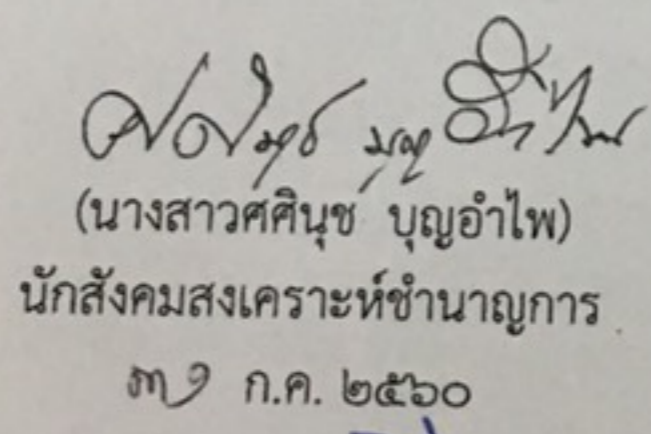 ศศินุช บุญอำไพ
(นางสาวศศินุช บุญอำไพ)
นักสังคมสงเคราะห์ชำนาญการ
๓๑ ก.ค. ๒๕๖๐